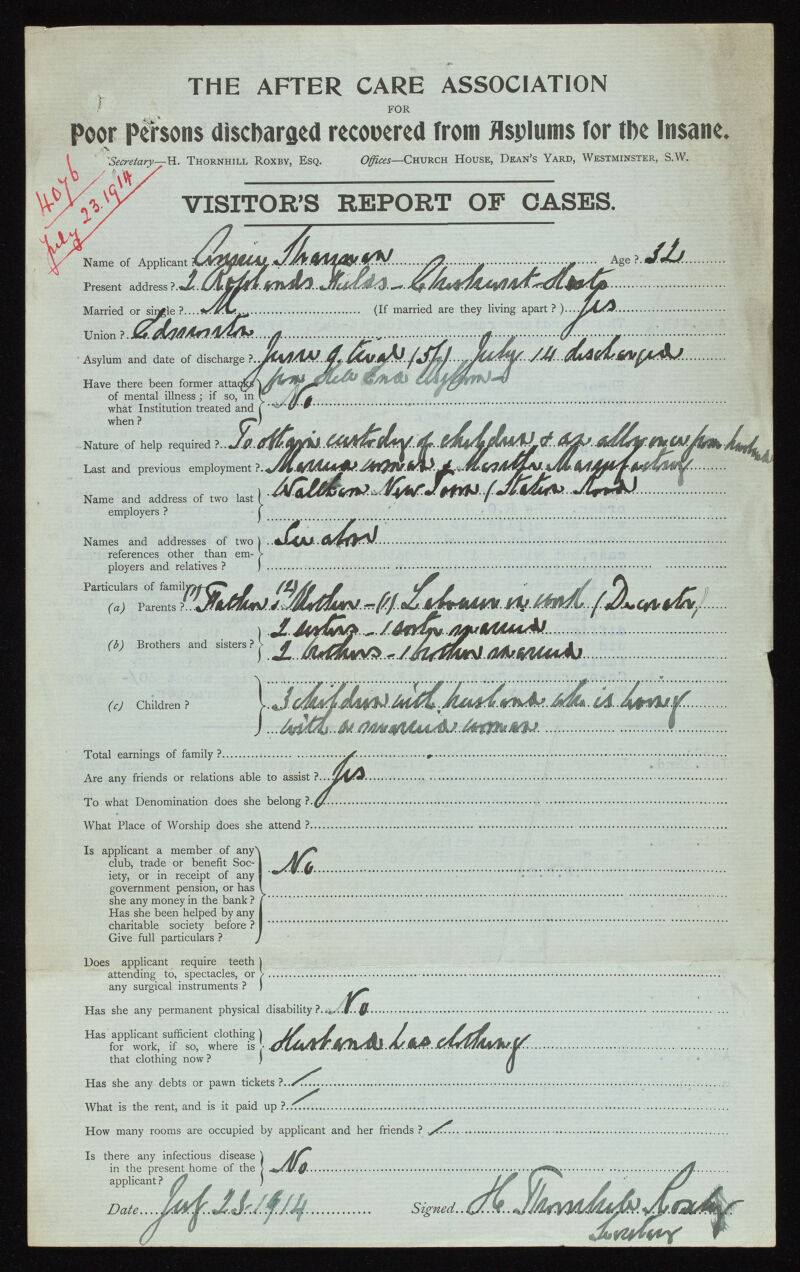 THE AFTER CARE ASSOCIATION
FOR
Poor Persons discharged recovered from Asylums for the Insane.
Secretary—H. THORNHILL ROXBY, ESQ. Offices—CHURCH HOUSE, DEAN'S YARD, WESTMINSTER, S.W.
4076
July 23. 1914
VISITOR'S REPORT OF CASES.
Name of Applicant? Annie Age? 32
Present address? 2 Fields - Herts
Married or single? M (If married are they living apart?) Yes
Union? Edmonton
Asylum and date of discharge? June 9. trial (5/) July 14 discharged
from Hill End Asylum
Have there been former attacks
of mental illness; if so, in
what Institution treated and
when? No
Nature of help required? To obtain custody of children & an allowance from husband
Last and previous employment? Married woman & Mantle Manufactory
Name and address of two last
employers? Waltham New Town (Station Road
Names and addresses of two
references other than em-
ployers and relatives? See above
Particulars of family—
(a) Parents? (1) Father & (2) Mother - (1) Labourer in work (Decorator)
(b) Brothers and sisters? 2 sisters - 1 sister married
2 brothers - 1 brother married
(c) Children? 3 children with husband who is living
with a married woman
Total earnings of family?
Are any friends or relations able to assist? Yes
To what Denomination does she belong?
What Place of Worship does she attend?
Is applicant a member of any
club, trade or benefit Soc-
iety, or in receipt of any
government pension, or has
she any money in the bank?
Has she been helped by any
charitable society before?
Give full particulars? No
Does applicant require teeth
attending to, spectacles, or
any surgical instruments?
Has she any permanent physical disability? No
Has applicant sufficient clothing
for work, if so, where is
that clothing now? Husband has clothing
Has she any debts or pawn tickets? /
What is the rent, and is it paid up? /
How many rooms are occupied by applicant and her friends? /
Is there any infectious disease
in the present home of the
applicant? No
Date July 23 1914 Signed H Thornhill Roxby
Secretary